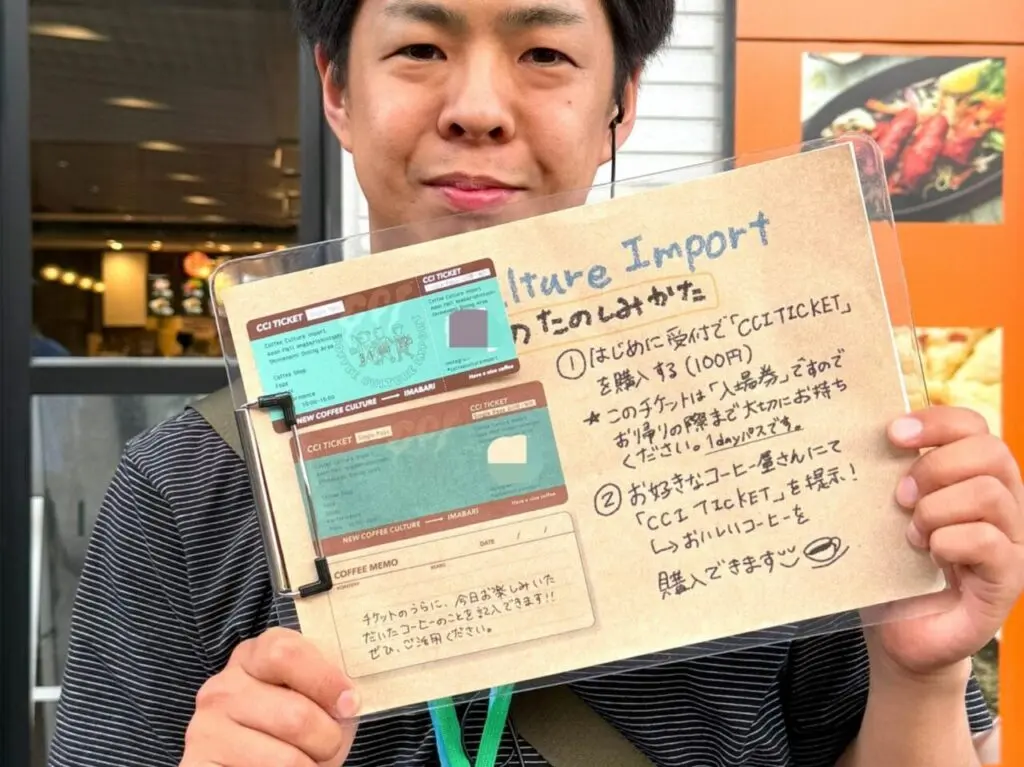 lture Import
のたのしみかた
① はじめに受付で「CCI TICKET」
を購入する (100円)
★ このチケットは「入場券」ですので
お帰りの際まで大切にお持ち
ください。1dayパスです。
② お好きなコーヒー屋さんにて
「CCI TICKET」を提示!
↳ おいしいコーヒーを
購入できます
CCI TICKET
CCI TICKET
Coffee Culture Import
Shinienami Dining Area
Coffee Shop
Food
10:00-16:00
NEW COFFEE CULTURE IMABARI
Have a nice coffee
CCI TICKET Single Pass
CCI TICKET
NEW COFFEE CULTURE IMABARI
Have a nice coffee
COFFEE MEMO
DATE / /
チケットのうらに、今日お楽しみいた
だいたコーヒーのことを記入できます!!
ぜひ、ご活用ください。